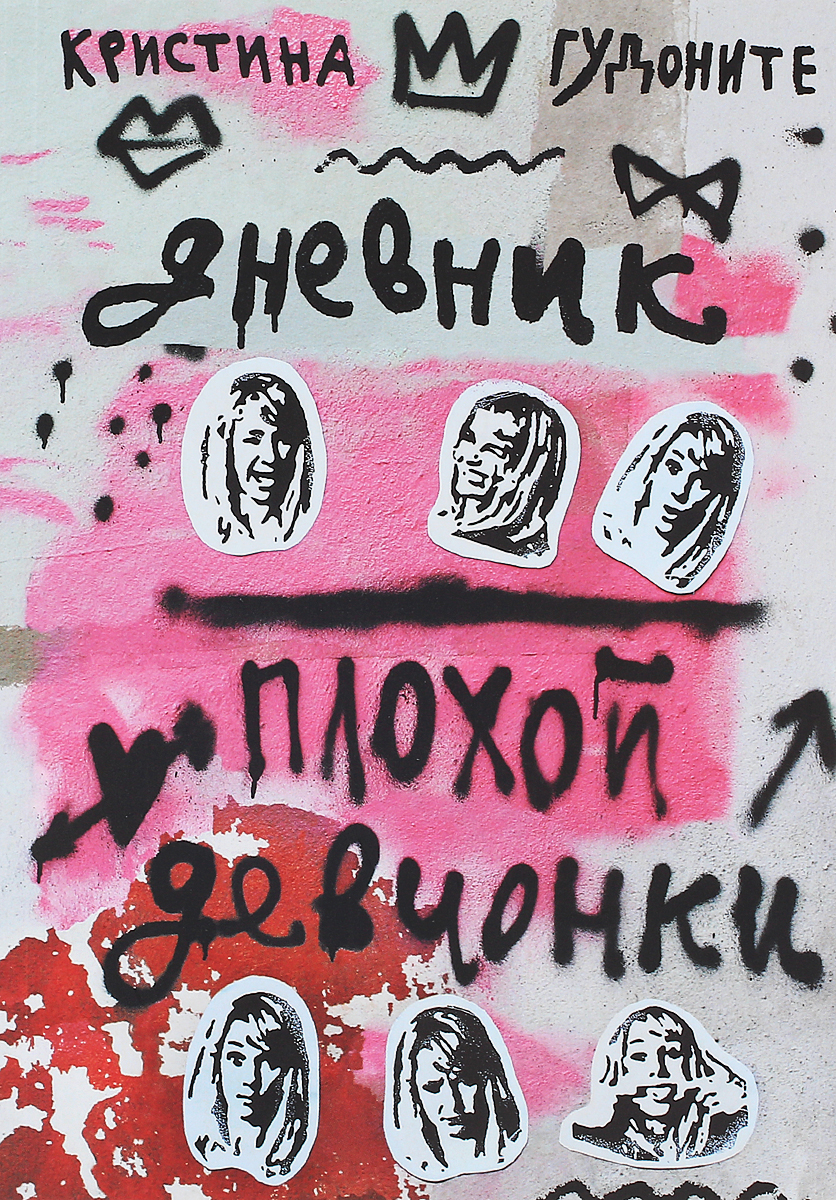 КРИСТИНА ГУДОНИТЕ
дневник
плохой
девчонки